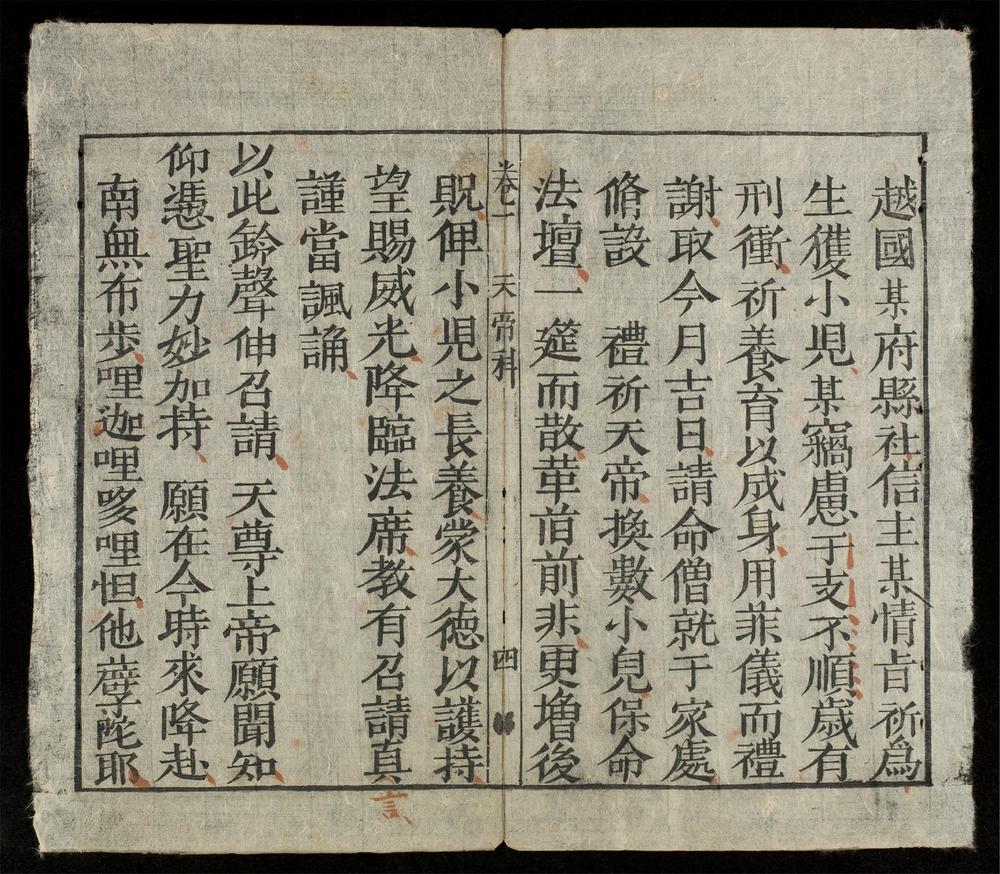 越國某府縣社信主某情旨祈爲
生獲小児某竊慮于支不順歲有
刑衝祈養育以成身用菲儀而禮
謝取今月吉日請命僧就于家處
脩設　禮祈天帝換數小兒保命
法壇一筵而散革前非更增後
卷一　天帝科　四
貺俾小児之長養蒙大德以護持
望賜威光降臨法席教有召請真
言
謹當諷誦
以此鈴聲伸召請　天尊上帝願聞知
仰憑聖力妙加持　願在今時來降赴
南無布步哩迦哩哆哩怛他蘖陀耶